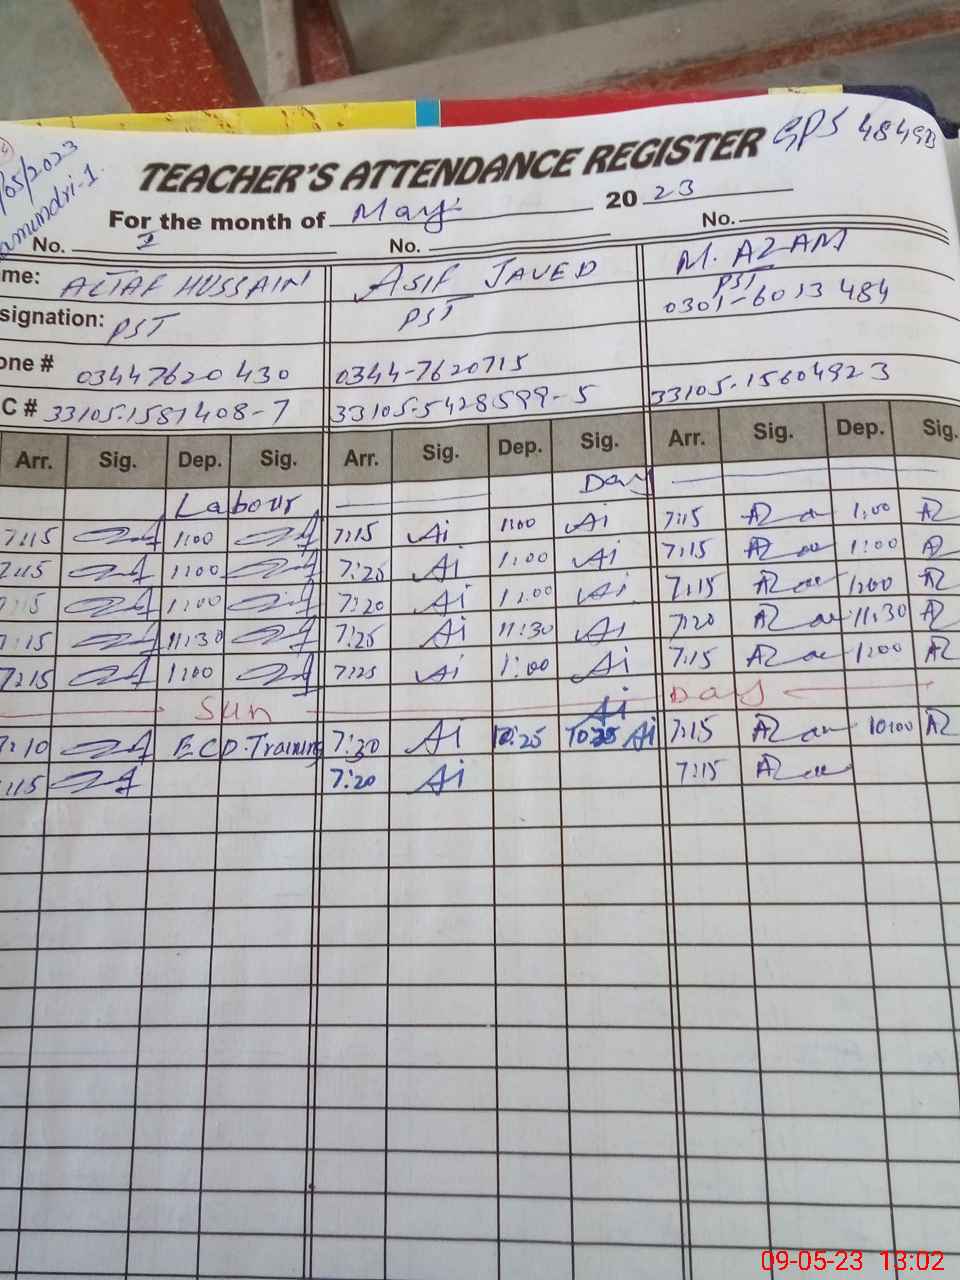 /05/2023
amundri-1.
GPS 484GB
TEACHER'S ATTENDANCE REGISTER
For the month of May 2023
No. I No. No.
me: ALTAF HUSSAIN ASIF JAVED M. AZAM
signation: PST PST PST
0301-6013484
one # 03447620430 0344-7620715
C # 33105-1581408-7 33105-5428599-5 33105-15604923
Arr. Sig. Dep. Sig. Arr. Sig. Dep. Sig. Arr. Sig. Dep. Sig.
Labour Day
7:15 1:00 7:15 Ai 1:00 Ai 7:15 AZ 1:00 AZ
7:15 1:00 7:25 Ai 1:00 Ai 7:15 AZ 1:00 AZ
7:15 1:00 7:20 Ai 1:00 Ai 7:15 AZ 1:00 AZ
7:15 11:30 7:25 Ai 11:30 Ai 7:20 AZ 11:30 AZ
7:15 1:00 7:25 Ai 1:00 Ai 7:15 AZ 1:00 AZ
Sun Day
Ai
7:10 ECD.Training 7:20 Ai 10:25 10:35 Ai 7:15 AZ 10:00 AZ
:15 7:20 Ai 7:15 AZ
09-05-23 13:02